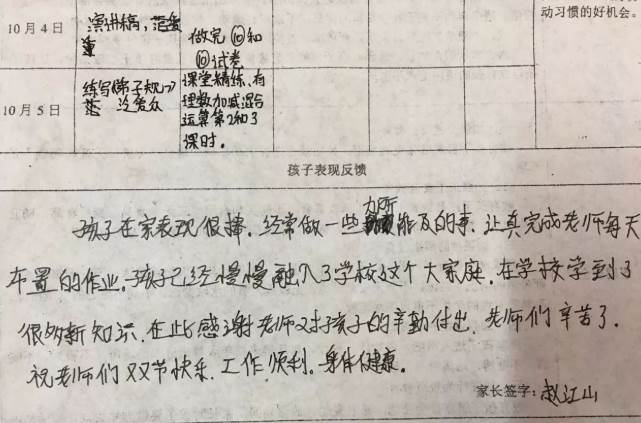 动习惯的好机会。
10月4日
演讲稿，范爱
做完⑩和
⑩试卷
10月5日
练写《弟子规》
泛爱众
课堂精练、有
理数加减混合
运算第2和3
课时。
孩子表现反馈
力所
孩子在家表现很棒，经常做一些能及的事，让真完成老师每天
布置的作业，孩子已经慢慢融入了学校这个大家庭，在学校学到了
很多新知识，在此感谢老师对孩子的辛勤付出，老师们辛苦了。
祝老师们双节快乐，工作顺利。身体健康。
家长签字：赵江山